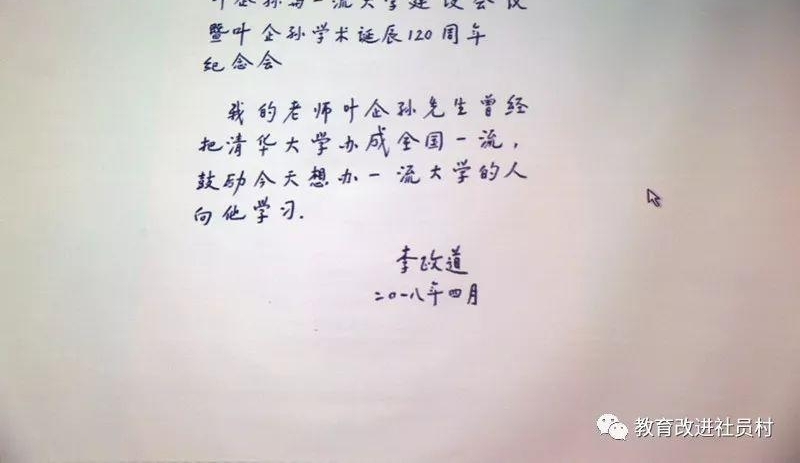 叶企孙与一流大学建设会议
暨叶企孙学术诞辰120周年
纪念会
我的老师叶企孙先生曾经
把清华大学办成全国一流，
鼓励今天想办一流大学的人
向他学习.
李政道
二〇一八年四月
教育改进社员村